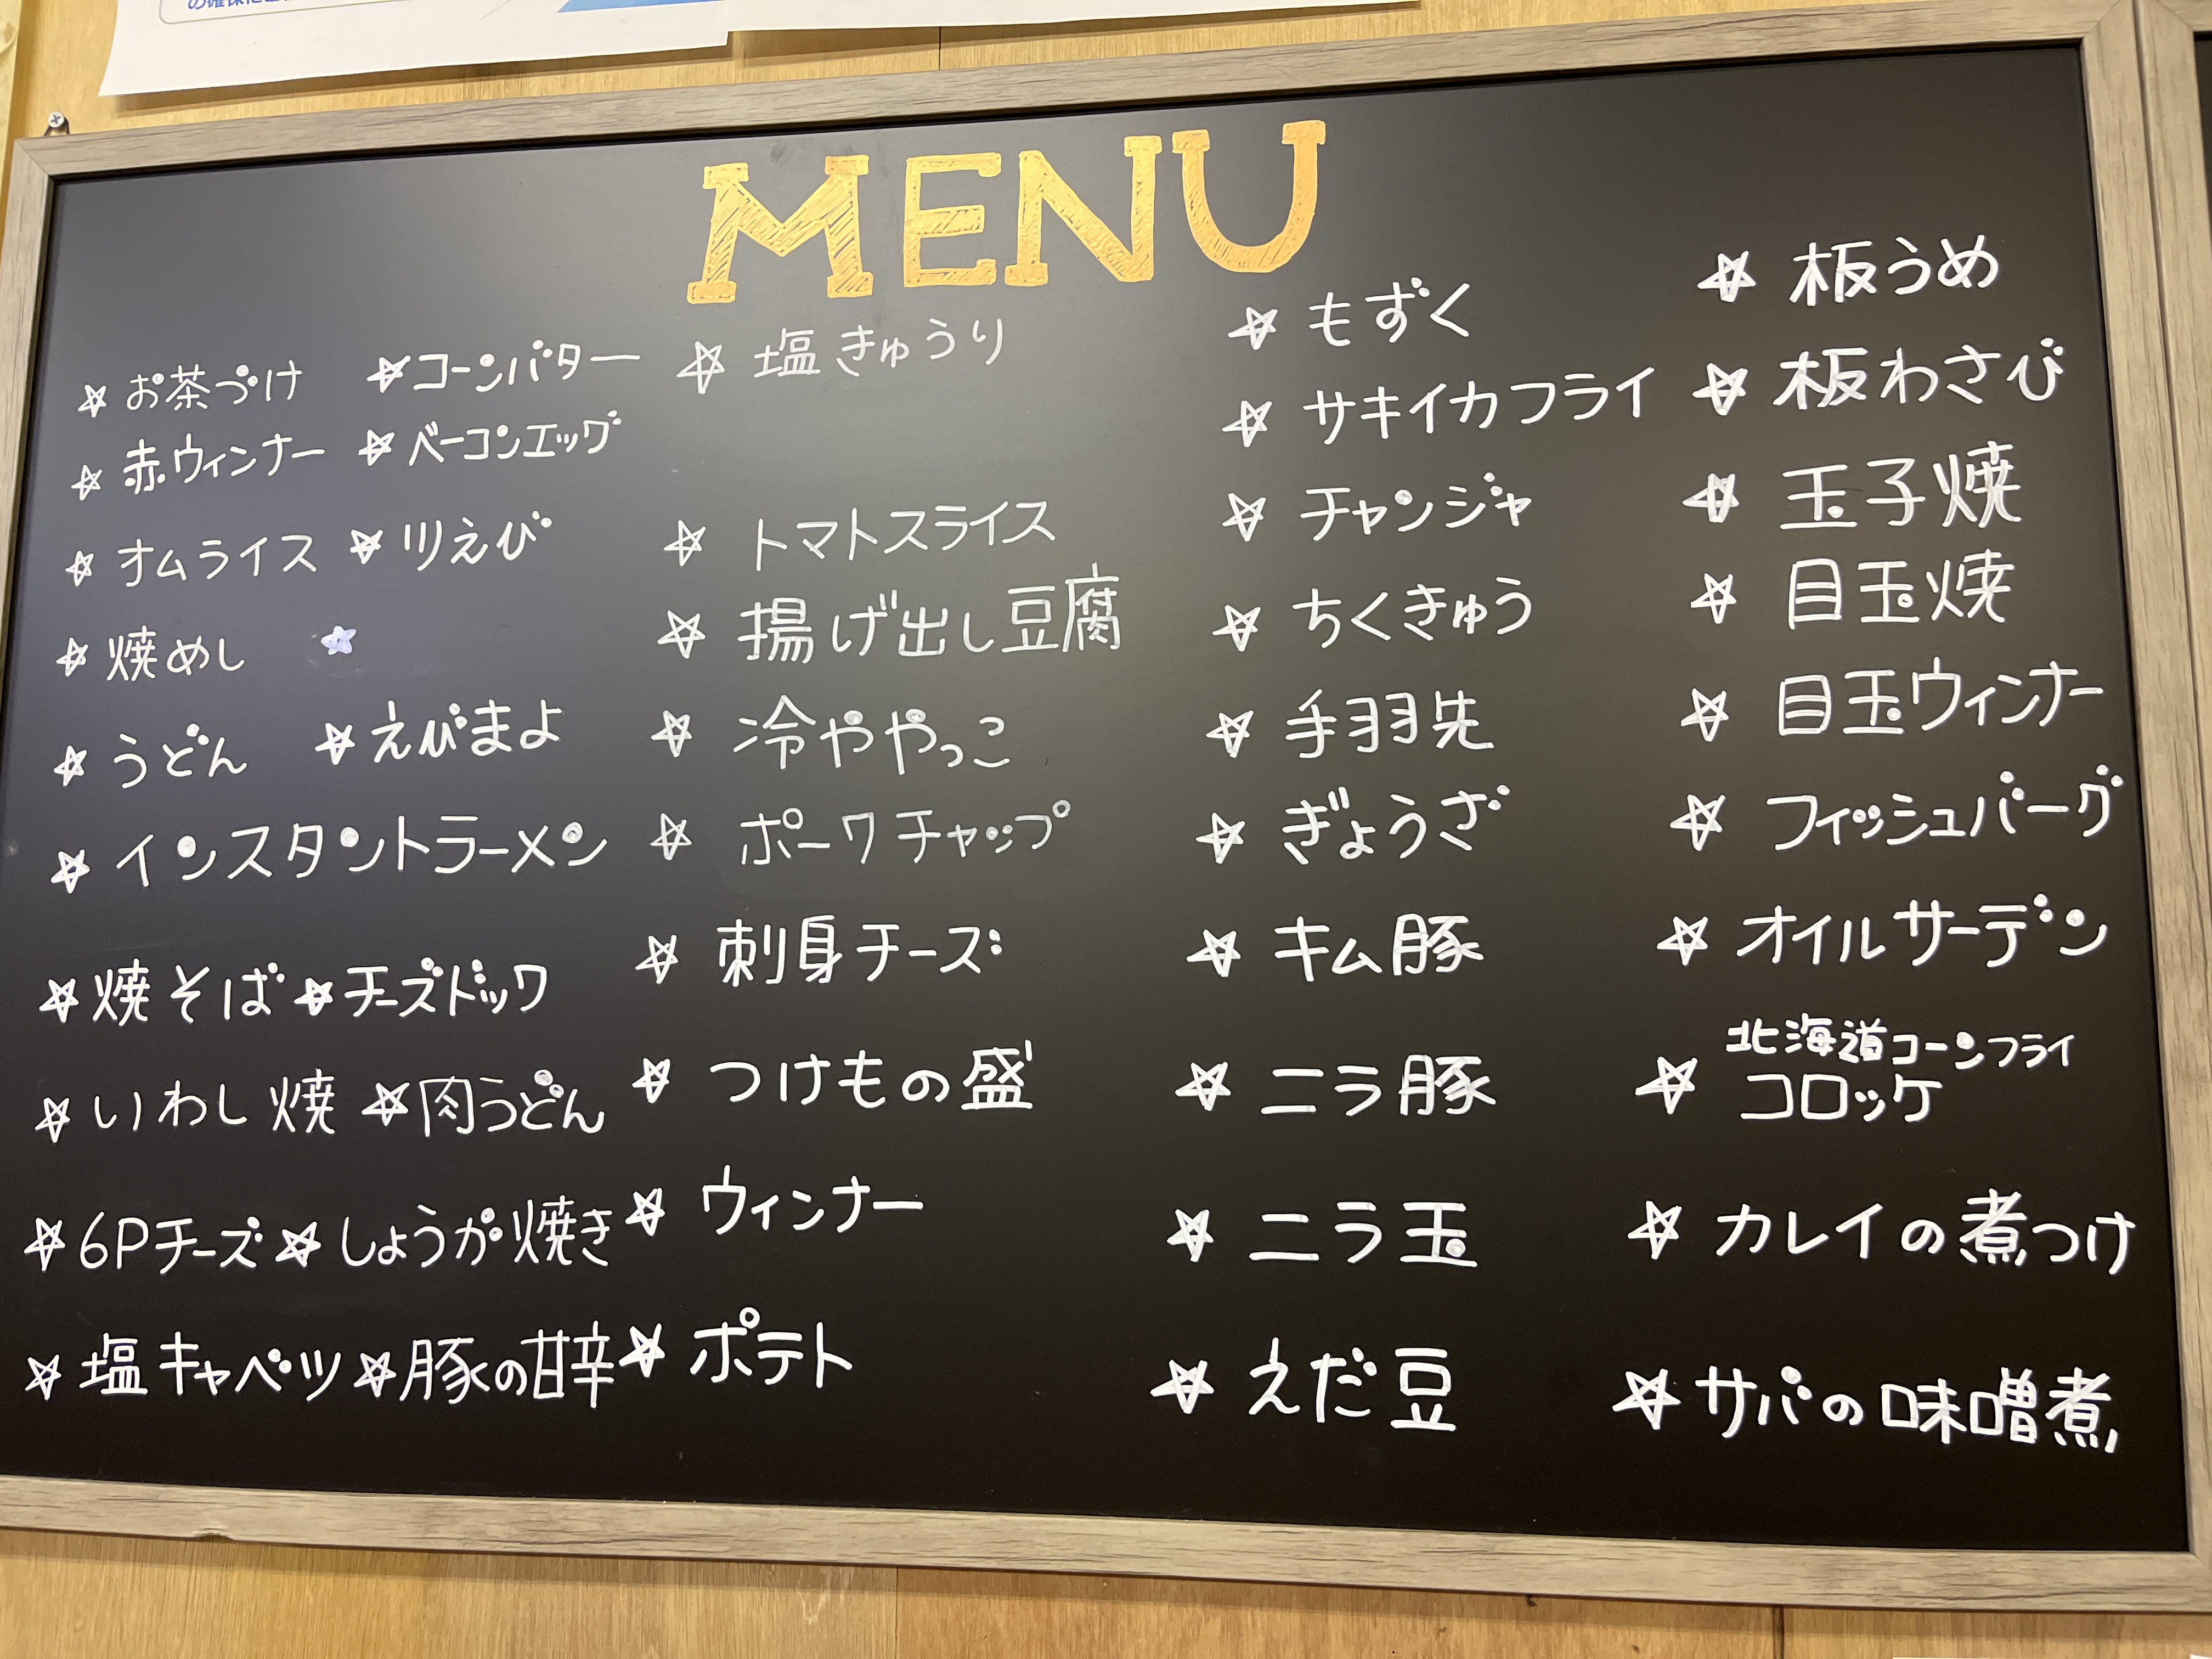 MENU
☆ お茶づけ ☆ コーンバター ☆ 塩きゅうり ☆ もずく ☆ 板うめ
☆ 赤ウィンナー ☆ ベーコンエッグ ☆ サキイカフライ ☆ 板わさび
☆ オムライス ☆ 川えび ☆ トマトスライス ☆ チャンジャ ☆ 玉子焼
☆ 焼めし ☆ ☆ 揚げ出し豆腐 ☆ ちくきゅう ☆ 目玉焼
☆ うどん ☆ えびまよ ☆ 冷ややっこ ☆ 手羽先 ☆ 目玉ウィンナー
☆ インスタントラーメン ☆ ポークチャップ ☆ ぎょうざ ☆ フィッシュバーグ
☆ 焼そば ☆ チーズドック ☆ 刺身チーズ ☆ キム豚 ☆ オイルサーデン
☆ いわし焼 ☆ 肉うどん ☆ つけもの盛 ☆ ニラ豚 ☆ 北海道コーンフライ
コロッケ
☆ 6Pチーズ ☆ しょうが焼き ☆ ウィンナー ☆ ニラ玉 ☆ カレイの煮つけ
☆ 塩キャベツ ☆ 豚の甘辛 ☆ ポテト ☆ えだ豆 ☆ サバの味噌煮